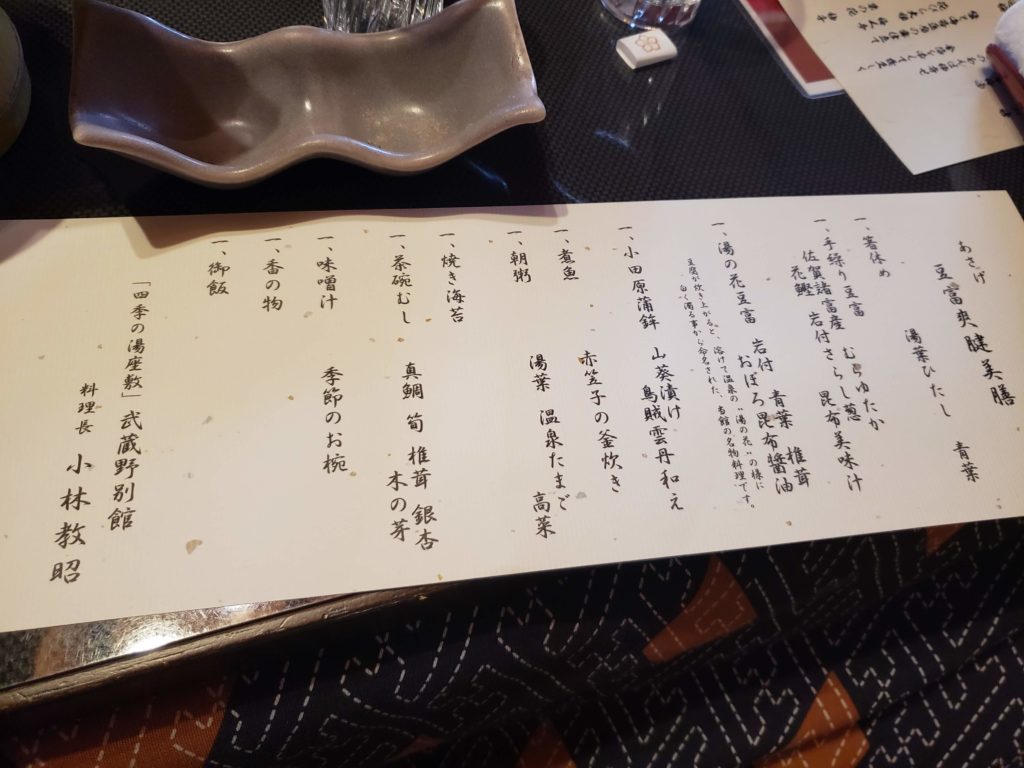 あさげ
豆富爽健美膳
一、箸休め 湯葉ひたし 青葉
一、手繰り豆富 むらゆたか
佐賀諸富産 岩付さらし葱 昆布美味汁
花鰹
一、湯の花豆富 岩付 青葉 椎茸
おぼろ昆布醤油
豆腐が炊き上がると、溶けて温泉の〝湯の花〟の様に
白く濁る事から命名された、当館の名物料理です。
一、小田原蒲鉾 山葵漬け
烏賊雲丹和え
一、煮魚 赤笠子の釜炊き
一、朝粥 湯葉 温泉たまご 高菜
一、焼き海苔
一、茶碗むし 真鯛 筍 椎茸 銀杏
木の芽
一、味噌汁 季節のお椀
一、香の物
一、御飯
「四季の湯座敷」武蔵野別館
料理長 小林教昭